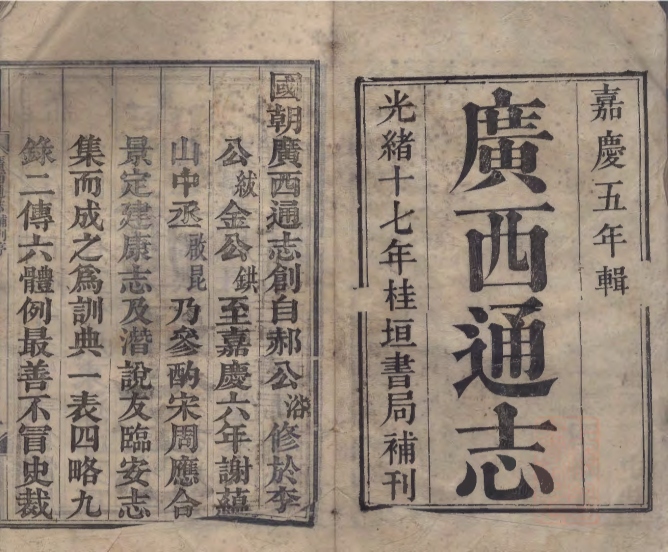 嘉慶五年輯
廣西通志
光緒十七年桂垣書局補刊
國朝廣西通志創自郝公浴修於李
公紱金公鉷至嘉慶六年謝蘊
山中丞啟昆乃參酌宋周應合
景定建康志及潛說友臨安志
集而成之爲訓典一表四略九
錄二傳六體例最善不冐史裁